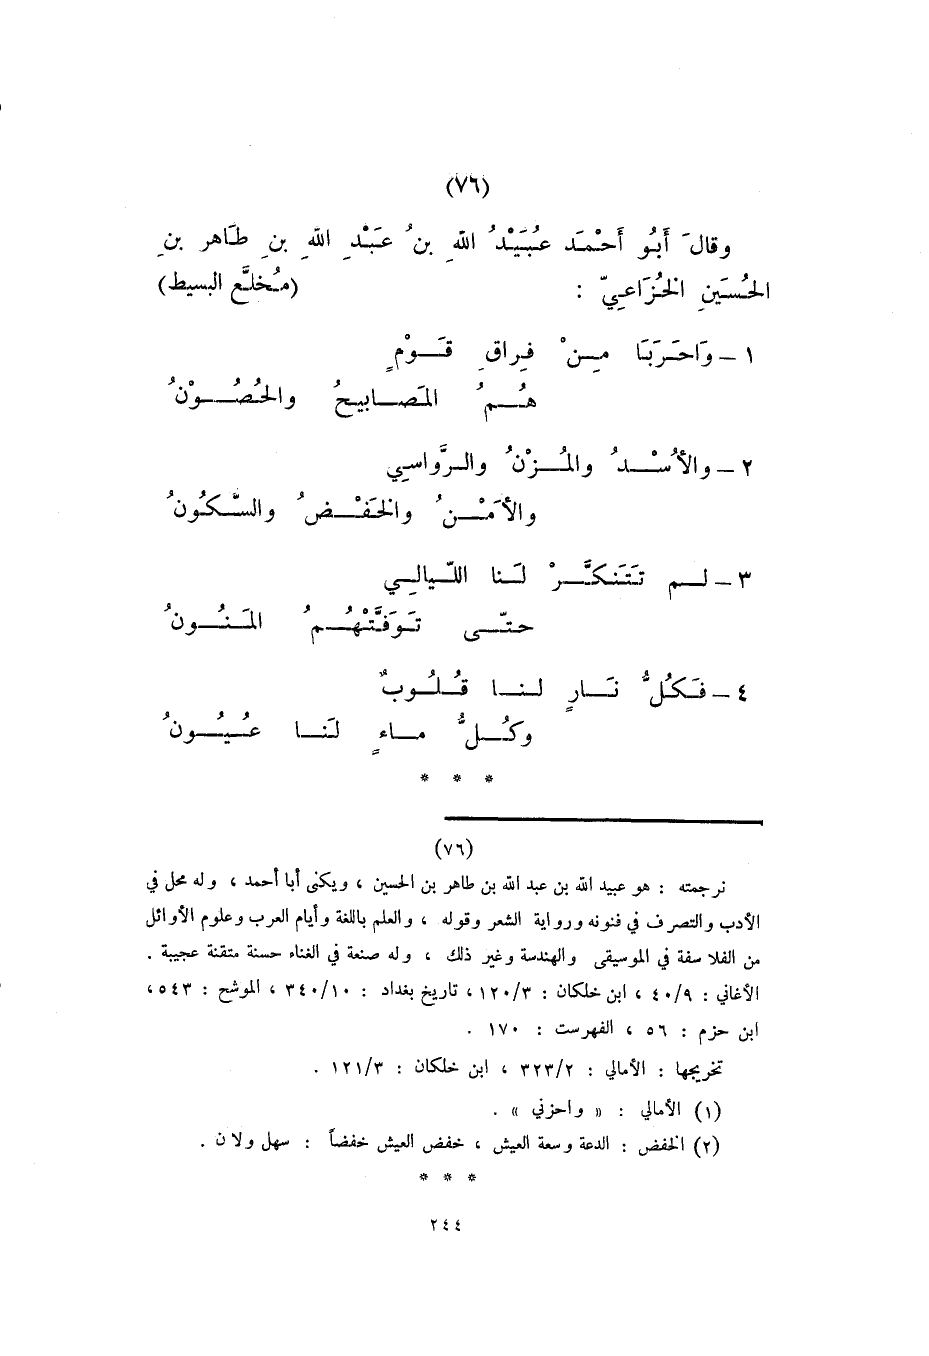 (٧٦)
وقالَ أَبُو أَحْمَد عُبَيْدُ اللهِ بنُ عَبْدِ اللهِ بنِ طَاهر بنِ
الحُسَينِ الخُزَاعيّ : (مُخلَّع البسيط)
١ – وَاحَرَبَا مِنْ فِراقِ قَوْمٍ
هُمُ المَصابيحُ والحُصُوْنُ
٢ – والأُسْدُ والمُزْنُ والرَّواسِي
والأَمْنُ والخَفْضُ والسَّكُونُ
٣ – لم تَتَنَكَّرْ لَنا اللّيالِي
حتّى تَوَفَّتْهُمُ المَنُونُ
٤ – فَكُلُّ نَارٍ لنا قُلُوبٌ
وكُلُّ ماءٍ لَنا عُيُونُ
* * *
(٧٦)
ترجمته : هو عبيد الله بن عبد الله بن طاهر بن الحسين ، ويكنى أبا أحمد ، وله محل في
الأدب والتصرف في فنونه ورواية الشعر وقوله ، والعلم باللغة وأيام العرب وعلوم الأوائل
من الفلاسفة في الموسيقى والهندسة وغير ذلك ، وله صنعة في الغناء حسنة متقنة عجيبة .
الأغاني : ٤٠/٩ ، ابن خلكان : ١٢٠/٣ ، تاريخ بغداد : ٣٤٠/١٠ ، الموشح : ٥٤٣ ،
ابن حزم : ٥٦ ، الفهرست : ١٧٠ .
تخريجها : الأمالي : ٣٢٣/٢ ، ابن خلكان : ١٢١/٣ .
(١) الأمالي : « واحزني » .
(٢) الخفض : الدعة وسعة العيش ، خفض العيش خفضاً : سهل ولان .
* * *
٢٤٤